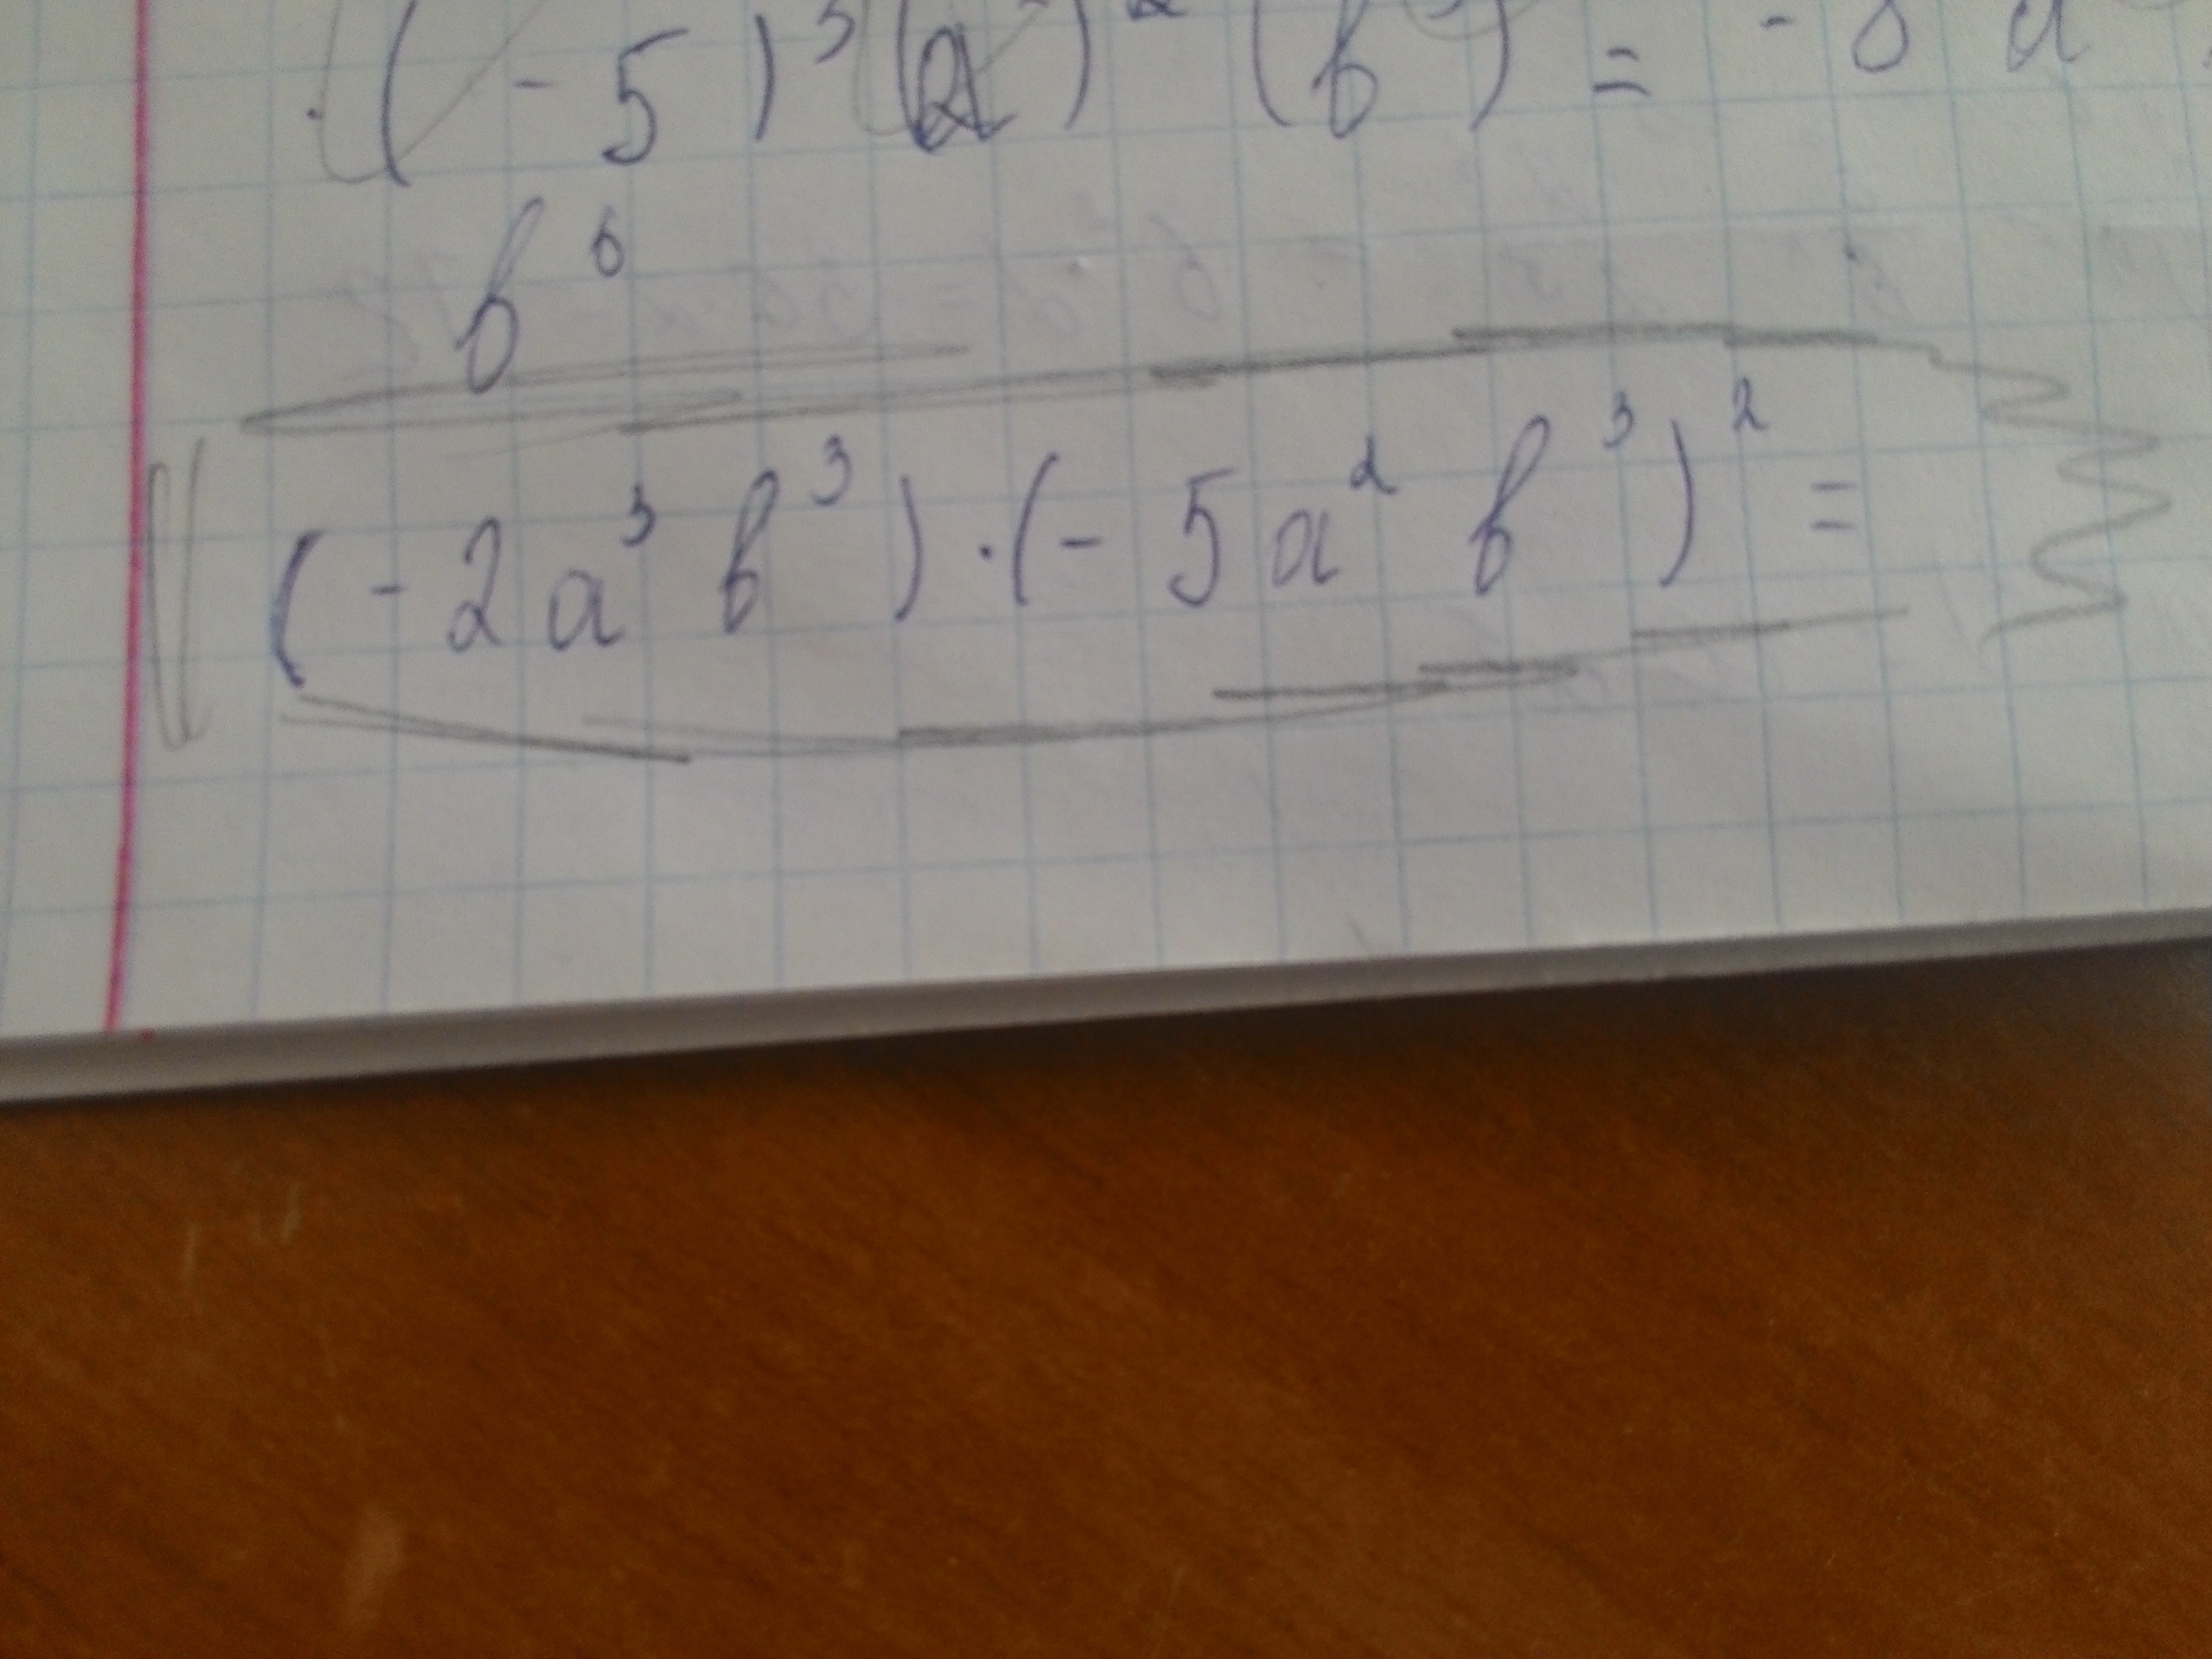 · ( - 5 )³ (a )² (b ) = - 8 a
b⁶
(-2a³ b³) · (-5a² b³)² =